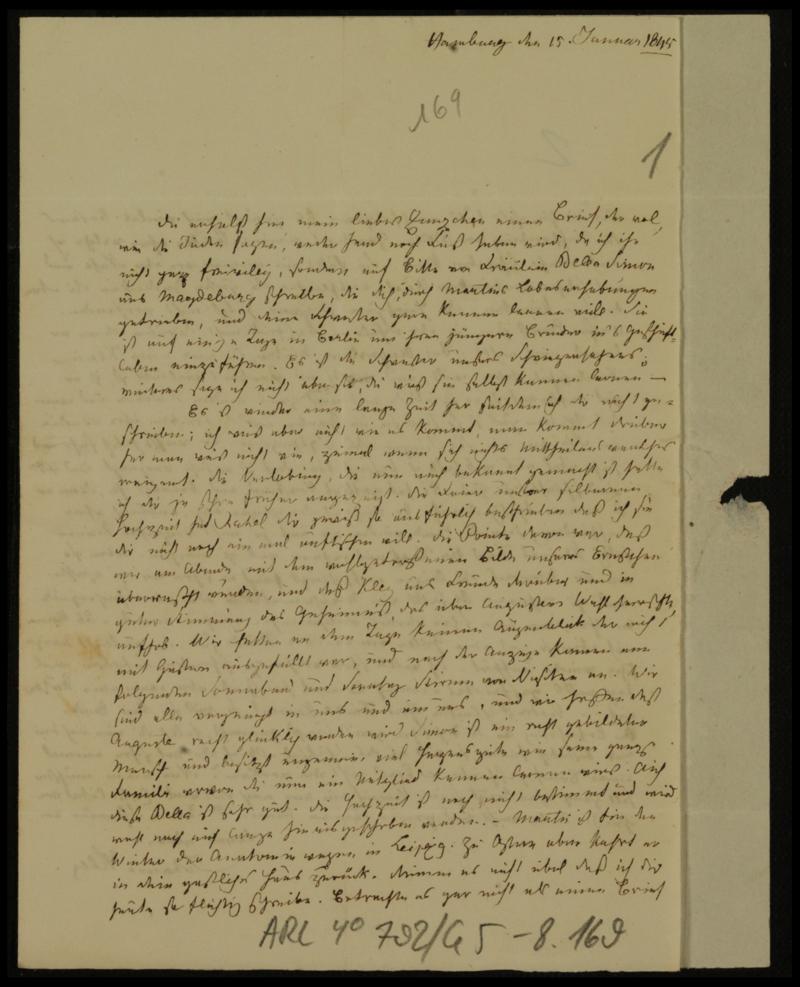 Hamburg den 15 Januar 1845
169
1
Du erhälst hier mein liebes einen Brief, der wol,
wie die Juden sagen, weder Hand noch Fuß haben wird, da ich ihn
nicht ganz freiwillig, sondern auf Bitte von Fräulein Della Simon
aus Magdeburg schreibe, die dich, durch Martins Lobeserhebungen
getrieben, und deine Schwester gern kennen lernen will. Sie
ist auf einige Tage in Berlin um ihren jüngern Bruder ins Geschäft-
leben einzuführen. Es ist die Schwester unsers Schwiegersohnes;
weiteres sage ich nicht über sie, du wirst sie selbst kennen lernen —
Es ist wieder eine lange Zeit her seitdem ich dir nicht ge-
schrieben; ich weis aber nicht wie es kommt, man kommt darüber
her man weis nicht wie, zumal wenn sich nichts Mittheilenswerthes
ereignet. Die Verlobung, die nun auch bekannt gemacht ist hatte
ich dir ja schon früher angezeigt. Die Feier unserer silbernen
Hochzeit hat Rahel dir gewiß so ausführlich beschrieben daß ich sie
dir nicht noch einmal auftischen will. Die Pointe davon war, daß
wir am Abend mit dem wohlgetroffenen Bilde unseres
überrascht wurden, und daß Kley aus Freude darüber und in
guter Stimmung das Geheimniß, das über Augustens Wahl herrschte,
aufhob. Wir hatten an dem Tage keinen Augenblick der nicht
mit Gästen ausgefüllt war, und nach der Anzeige kamen am
folgenden Sonnabend und Sonntag von Visiten an. Wir
sind alle vergnügt in uns und um uns, und wir hoffen daß
Auguste recht glücklich werden wird. Simon ist ein recht gebildeter
Mensch und besitzt ungemein viel Herzensgüte wie seine ganze
Familie wovon du nun ein Mitglied kennen lernen wirst. Auch
diese Della ist sehr gut. Die Hochzeit ist noch nicht bestimmt und wird
wohl noch auf lange hinausgeschoben werden. – Martin ist für den
Winter der Anatomie wegen in Leipzig. Zu Ostern aber kehrt er
in dein gastliches Haus zurück. Nimm es nicht übel daß ich dir
heute so flüchtig schreibe. Betrachte es gar nicht als einen Brief
ARC 4° 792/G5-8. 169